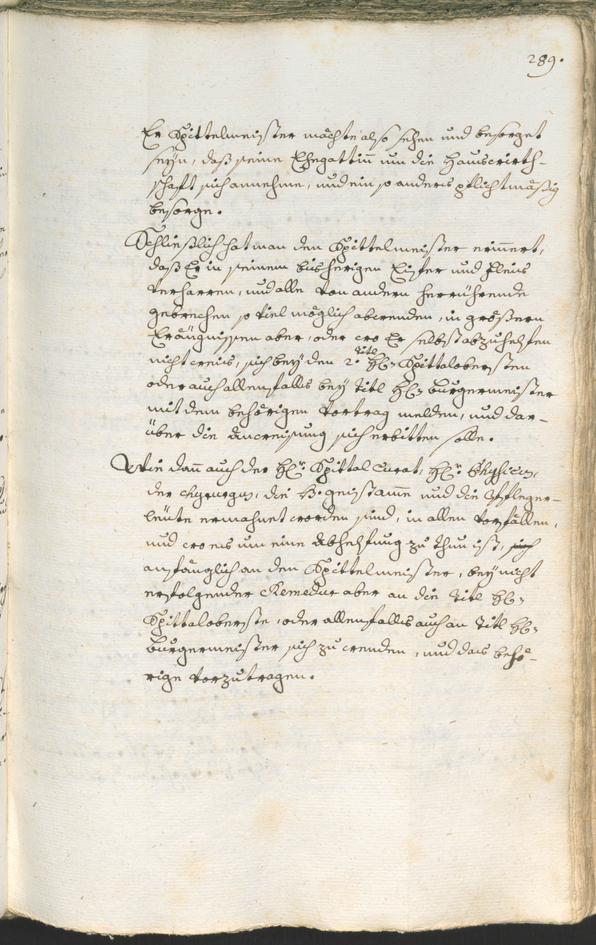 289.
Er Spittelmeister möchte also sehen und besorget
seyn, daß seine Ehegattin um die Hauswirth-
schaft sich annehme, und ein so anders pflichtmäßig
besorge.
Schließlich hat man den Spittelmeister erinnert,
daß Er in seinem bisherigen Eifer und Fleis
verharren, und alle von andern herrührende
gebrechen so viel möglich abwenden, in größern
Eräugnissen aber, oder wo Er selbst abzuhelfen
nicht weis, sich bey den 2. Titl HE: Spittalobersten
oder auch allenfalls bey Titl HE: burgermeister
mit dem behörigen Vortrag melden, und dar-
über die Anweisung sich erbitten solle.
Wie dann auch der HE: Spittal Curat, HE: Physicus,
der Chyrurgus, die und die Pfleger-
leüte ermahnet worden sind, in allen Vorfällen,
und wo es um eine Abhelfung zu thun ist, sich
anfänglich an den Spittelmeister, bey nicht
erfolgender Remedur aber an die Titl HE:
Spittaloberste, oder allenfalls auch an Titl HE:
burgermeister sich zu wenden, und das behö-
rige vorzutragen.